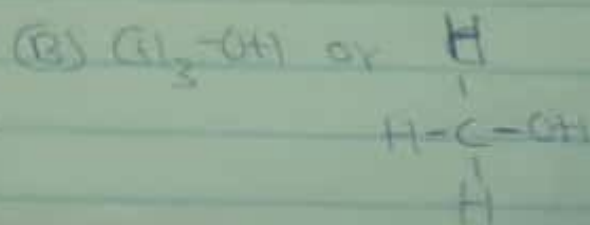 (B) CH3-OH or H
H-C-OH
H